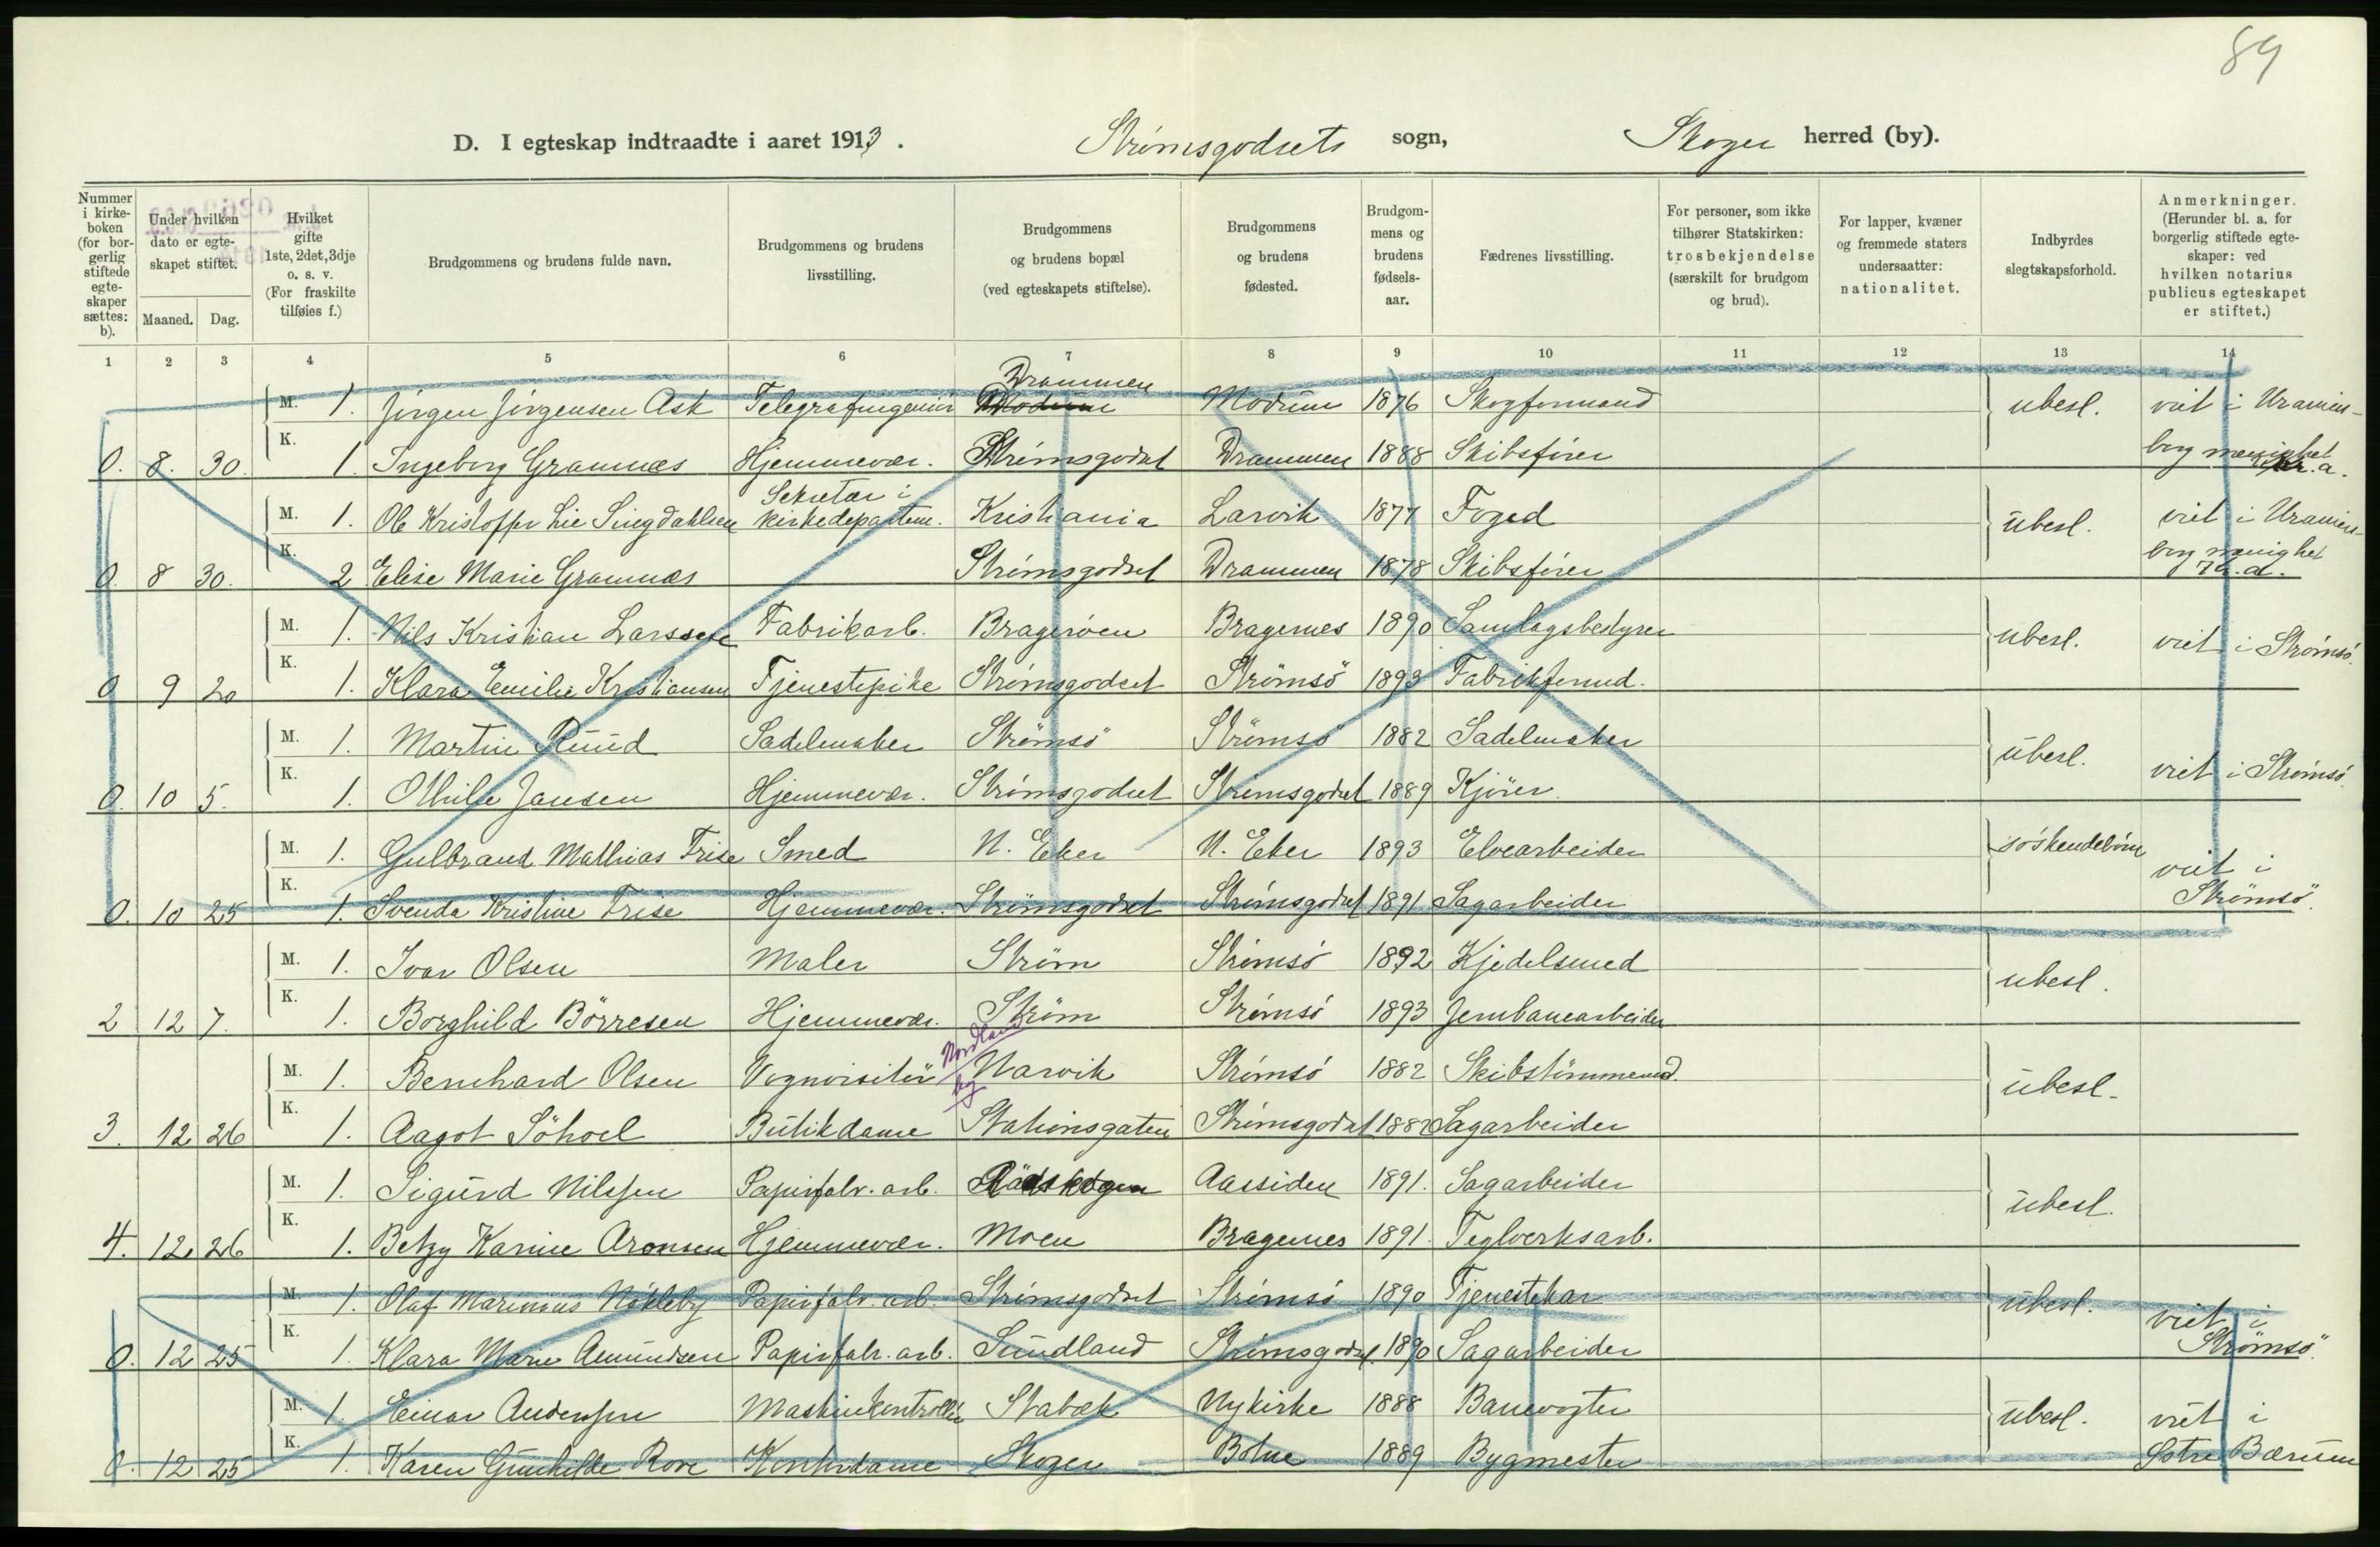 89
D. I egteskap indtraadte i aaret 1913. Strømsgodsets sogn, Skoger herred (by).
Nummer i kirkeboken (for borgerlig stiftede egteskaper sættes: b). Under hvilken dato er egteskapet stiftet. Maaned. Dag. Hvilket gifte 1ste, 2det, 3dje o. s. v. (For fraskilte tilføies f.) Brudgommens og brudens fulde navn. Brudgommens og brudens livsstilling. Brudgommens og brudens bopæl (ved egteskapets stiftelse). Brudgommens og brudens fødested. Brudgommens og brudens fødselsaar. Fædrenes livsstilling. For personer, som ikke tilhører Statskirken: trosbekjendelse (særskilt for brudgom og brud). For lapper, kvæner og fremmede staters undersaatter: nationalitet. Indbyrdes slegtskapsforhold. Anmerkninger. (Herunder bl. a. for borgerlig stiftede egteskaper: ved hvilken notarius publicus egteskapet er stiftet.)
1 2 3 4 5 6 7 8 9 10 11 12 13 14
Drammen
M. 1. Jørgen Jørgensen Ask Telegrafingeniør Modum Modum 1876 Skogformand ubesl. viet i Uranien-
0. 8. 30. K. 1. Ingeborg Gramnæs Hjemmevær. Strømsgodset Drammen 1888 Skibsfører borg menighet Kr.a.
Sekretær i
M. 1. Ole Kristoffer Lie Singdahlsen kirkedepartem. Kristiania Larvik 1877 Foged ubesl. viet i Uranien-
borg menighet
0. 8 30. K. 2 Elise Marie Gramnæs Strømsgodset Drammen 1878 Skibsfører Kr.a.
M. 1. Nils Kristian Larssen Fabrikarb. Bragerøen Bragernes 1890 Samlagsbestyrer ubesl. viet i Strømsø.
0 9 20 K. 1. Klara Emilie Kristiansen Tjenestepike Strømsgodset Strømsö 1893 Fabrikformd.
M. 1. Martin Ruud Sadelmaker Strömsö Strömsö 1882 Sadelmaker ubesl. viet i Strømsø.
0. 10 5. K. 1. Othilie Jansen Hjemmevær. Strømsgodset Strømsgodset 1889 Kjører
M. 1. Gulbrand Mathias Frise Smed N. Eker N. Eker 1893 Elvearbeider søskendebørn viet i
0. 10 25 K. 1. Svenda Kristine Frise Hjemmevær. Strømsgodset Strømsgodset 1891 Sagarbeider Strömsö.
M. 1. Ivar Olsen Maler Strøm Strømsø 1892 Kjedelsmed ubesl.
2 12 7. K. 1. Borghild Börresen Hjemmevær. Strøm Strømsø 1893 Jernbanearbeider
Nordland
M. 1. Bernhard Olsen Vognvisitör by Narvik Strømsø 1882 Skibstömmermd. ubesl.
3. 12 26 K. 1. Aagot Söhoel Butikdame Stationsgaten Strømsgodset 1882 Sagarbeider
M. 1. Sigurd Nilssen Papirfabr. arb. Aassiden 1891. Sagarbeider ubesl.
4. 12 26 K. 1. Betzy Karine Aronsen Hjemmevær. Moen Bragernes 1891. Teglverksarb.
M. 1. Olaf Marinius Nökleby Papirfabr. arb. Strømsgodset Strømsø 1890 Tjenestekar ubesl. viet i
0. 12 25 K. 1. Klara Marie Amundsen Papirfabr. arb. Sundland Strømsgodset 1890 Sagarbeider Strömsö.
M. 1. Einar Anderssen Maskinkontrollør Stabæk Nykirke 1888 Banevogter ubesl. viet i
0. 12 25 K. 1. Karen Gunhilde Rove Kontordame Skoger Botne 1889 Bygmester Østre Bærum